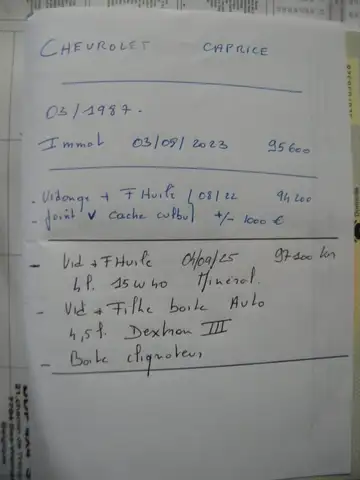 CHEVROLET CAPRICE
03/1987.
Immat 03/08/2023 95600
- Vidange + F Huile / 08/22 94 200
- Joint V Cache culbu +/- 1000 €
- Vid + F Huile 04/09/25 97100 km
4 l. 15W40 Minéral.
- Vid + Filtre boite Auto
4,5 l. Dextron III
- Boite clignoteur